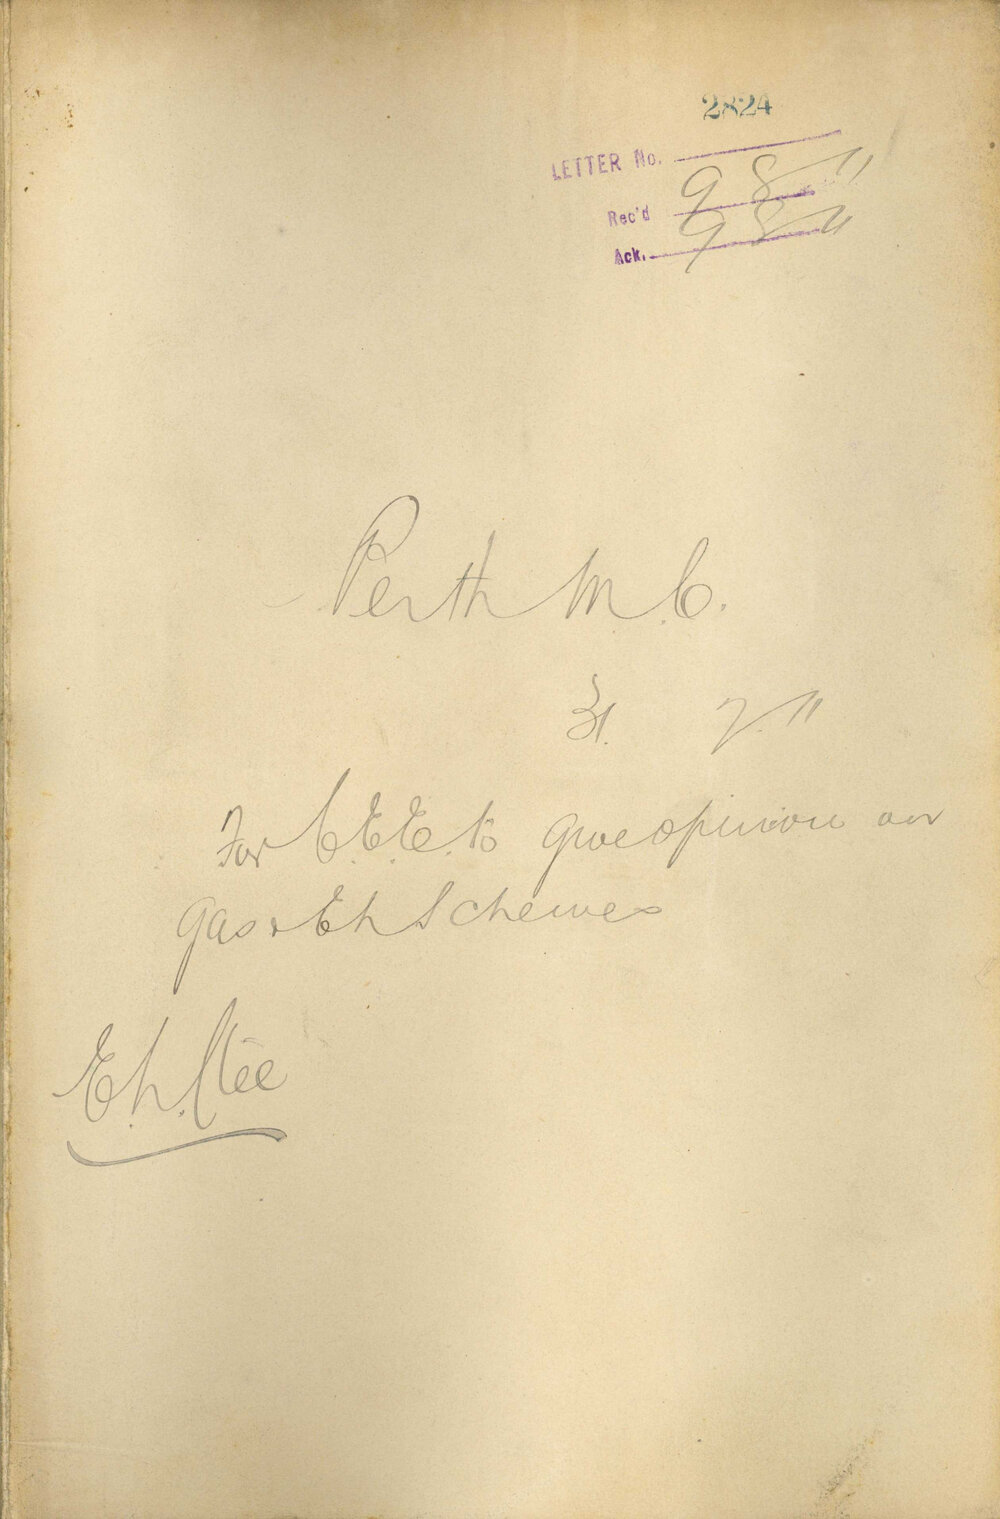 2824
LETTER No.
Rec'd 9 8 11
Ack. 9 8 11
Perth M. C.
31. 7. 11
For C.E.E. to give opinion on
Gas & E L Schemes
E. L. Ctee